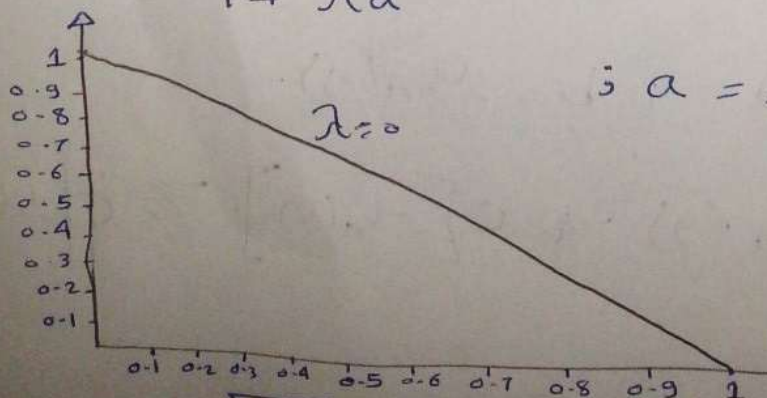 1+ λa
1
; a =
0.9
0.8
λ=0
0.7
0.6
0.5
0.4
0.3
0.2
0.1
0.1 0.2 0.3 0.4 0.5 0.6 0.7 0.8 0.9 1